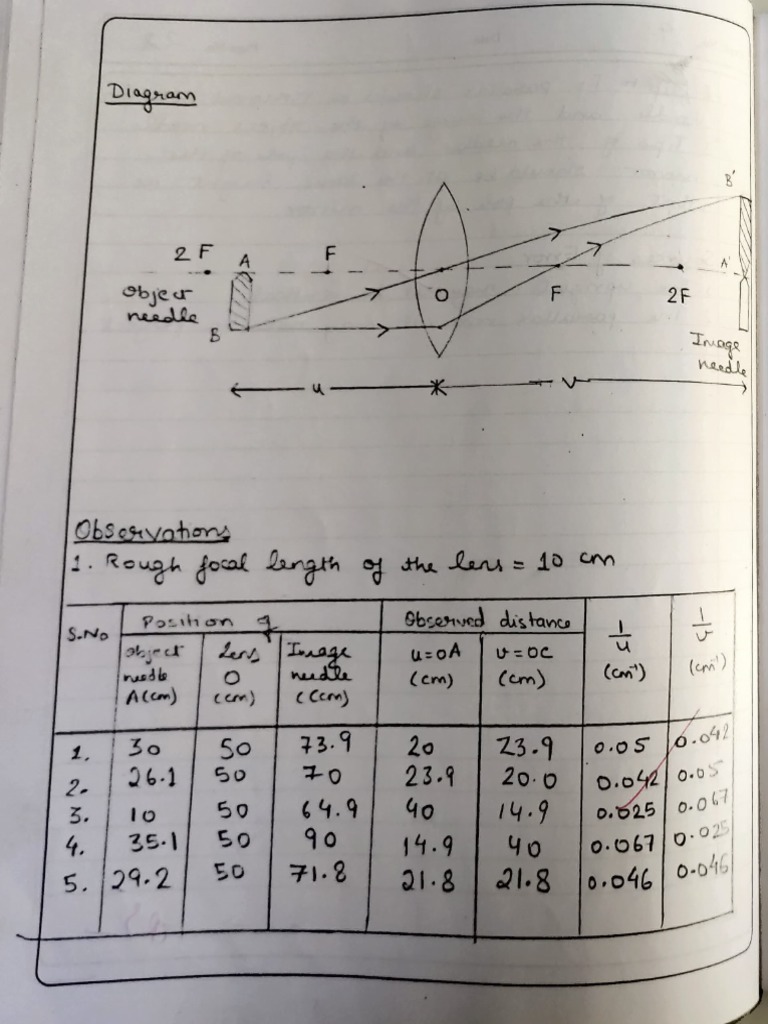 Diagram
B'
2F A F A'
O F 2F
object
needle
B
Image
needle
u v
Observations
1. Rough focal length of the lens = 10 cm
S.No Position of Observed distance 1/u (cm⁻¹) 1/v (cm⁻¹)
object needle A(cm) Lens O (cm) Image needle C(cm) u=OA (cm) v=OC (cm)
1. 30 50 73.9 20 23.9 0.05 0.042
2. 26.1 50 70 23.9 20.0 0.042 0.05
3. 10 50 64.9 40 14.9 0.025 0.067
4. 35.1 50 90 14.9 40 0.067 0.025
5. 29.2 50 71.8 21.8 21.8 0.046 0.046